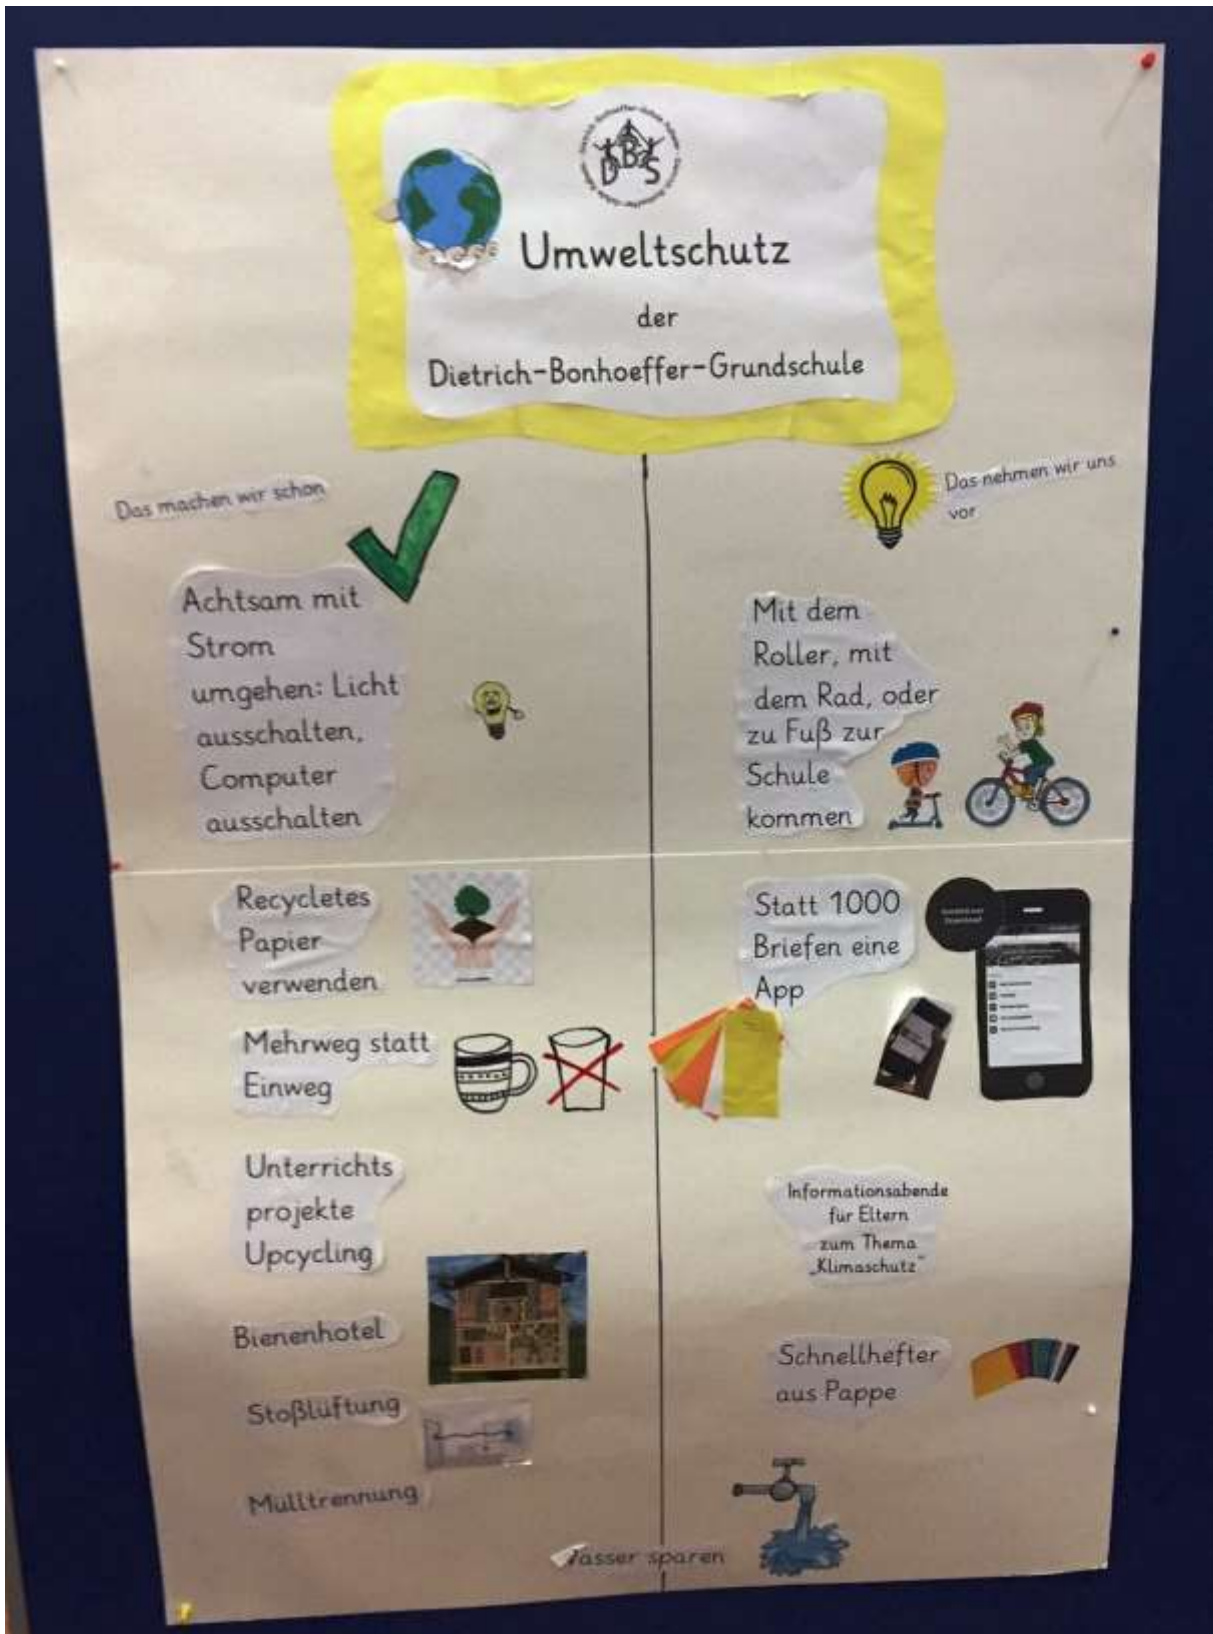 DBS
Umweltschutz
der
Dietrich-Bonhoeffer-Grundschule
Das machen wir schon
Achtsam mit
Strom
umgehen: Licht
ausschalten,
Computer
ausschalten
Recycletes
Papier
verwenden
Mehrweg statt
Einweg
Unterrichts
projekte
Upcycling
Bienenhotel
Stoßlüftung
Mülltrennung
Das nehmen wir uns
vor
Mit dem
Roller, mit
dem Rad, oder
zu Fuß zur
Schule
kommen
Statt 1000
Briefen eine
App
Informationsabende
für Eltern
zum Thema
„Klimaschutz"
Schnellhefter
aus Pappe
Wasser sparen